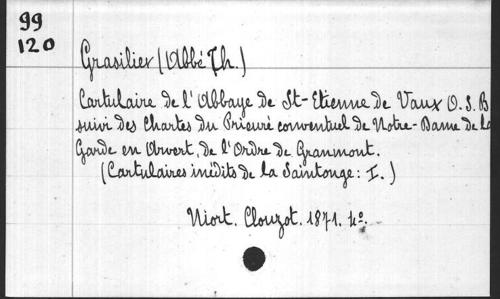 99
120
Grasilier (Abbé Th.)
Cartulaire de l'Abbaye de St-Etienne de Vaux O.S.B
suivi des Chartes du Prieuré conventuel de Notre-Dame de la
Garde en Arvert, de l'Ordre de Granmont.
(Cartulaires inédits de la Saintonge: I.)
Niort. Clouzot. 1871. 4o.